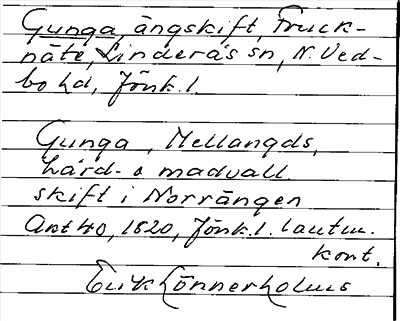 Gunga, ängskift, Fruck-
näte, Linderås sn, N. Ved-
bo hd, Jönk. l.
Gunga, Mellangds,
hård- o madvall
skift i Norrängen
Akt 40, 1820, Jönk. l. lantm.
kont.
Erik Lönnerholms